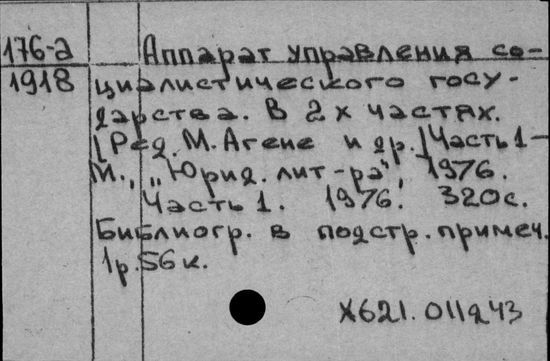 176-а Аппарат управления со-
1918 циалистического госу-
дарства. В 2х частях.
[Ред. М. Агене и др.] Часть 1-
М., „Юрид. лит-ра", 1976.
Часть 1. 1976. 320с.
Библиогр. в подстр. примеч.
1р.56к.
X621.011я43